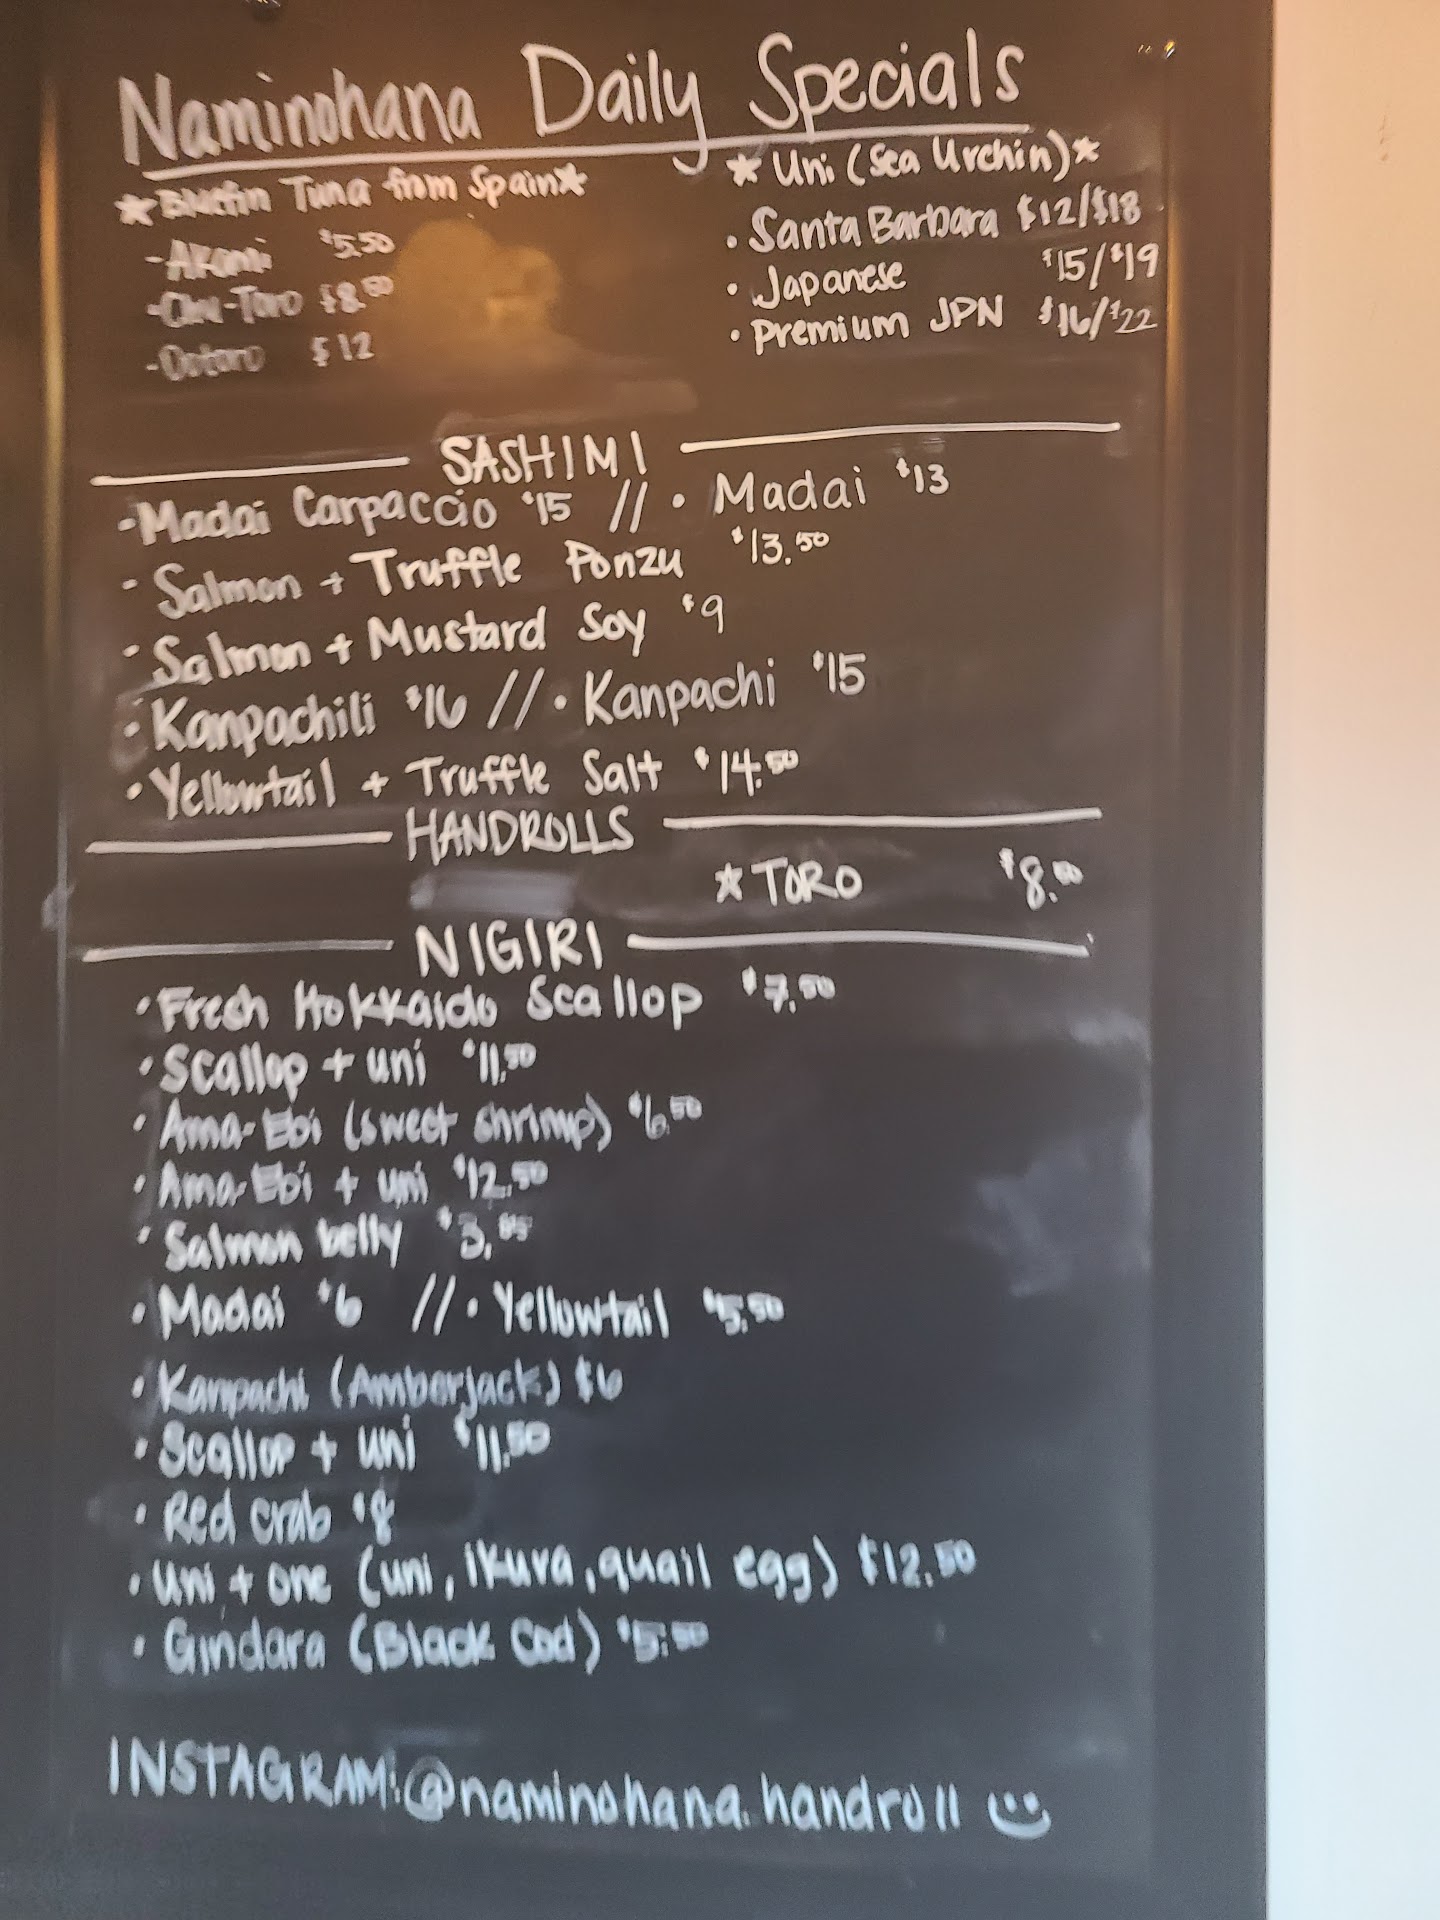 Naminohana Daily Specials
★ Bluefin Tuna from Spain ★
- Akami $5.50
- Chu-Toro $8.50
- Ootoro $12
★ Uni (Sea Urchin) ★
• Santa Barbara $12/$18
• Japanese $15/$19
• Premium JPN $16/$22
SASHIMI
- Madai Carpaccio $15 // • Madai $13
- Salmon + Truffle Ponzu $13.50
- Salmon + Mustard Soy $9
• Kanpachili $16 // • Kanpachi $15
• Yellowtail + Truffle Salt $14.50
HANDROLLS
☆ TORO $8.00
NIGIRI
• Fresh Hokkaido Scallop $7.50
• Scallop + uni $11.50
• Ama-Ebi (sweet shrimp) $6.50
• Ama-Ebi + uni $12.50
• Salmon belly
• Madai $6 // • Yellowtail $5.50
• Kanpachi (Amberjack) $6
• Scallop + uni $11.50
• Red crab $8
• Uni + one (uni, ikura, quail egg) $12.50
• Gindara (Black Cod) $5.50
INSTAGRAM: @naminohana.handroll